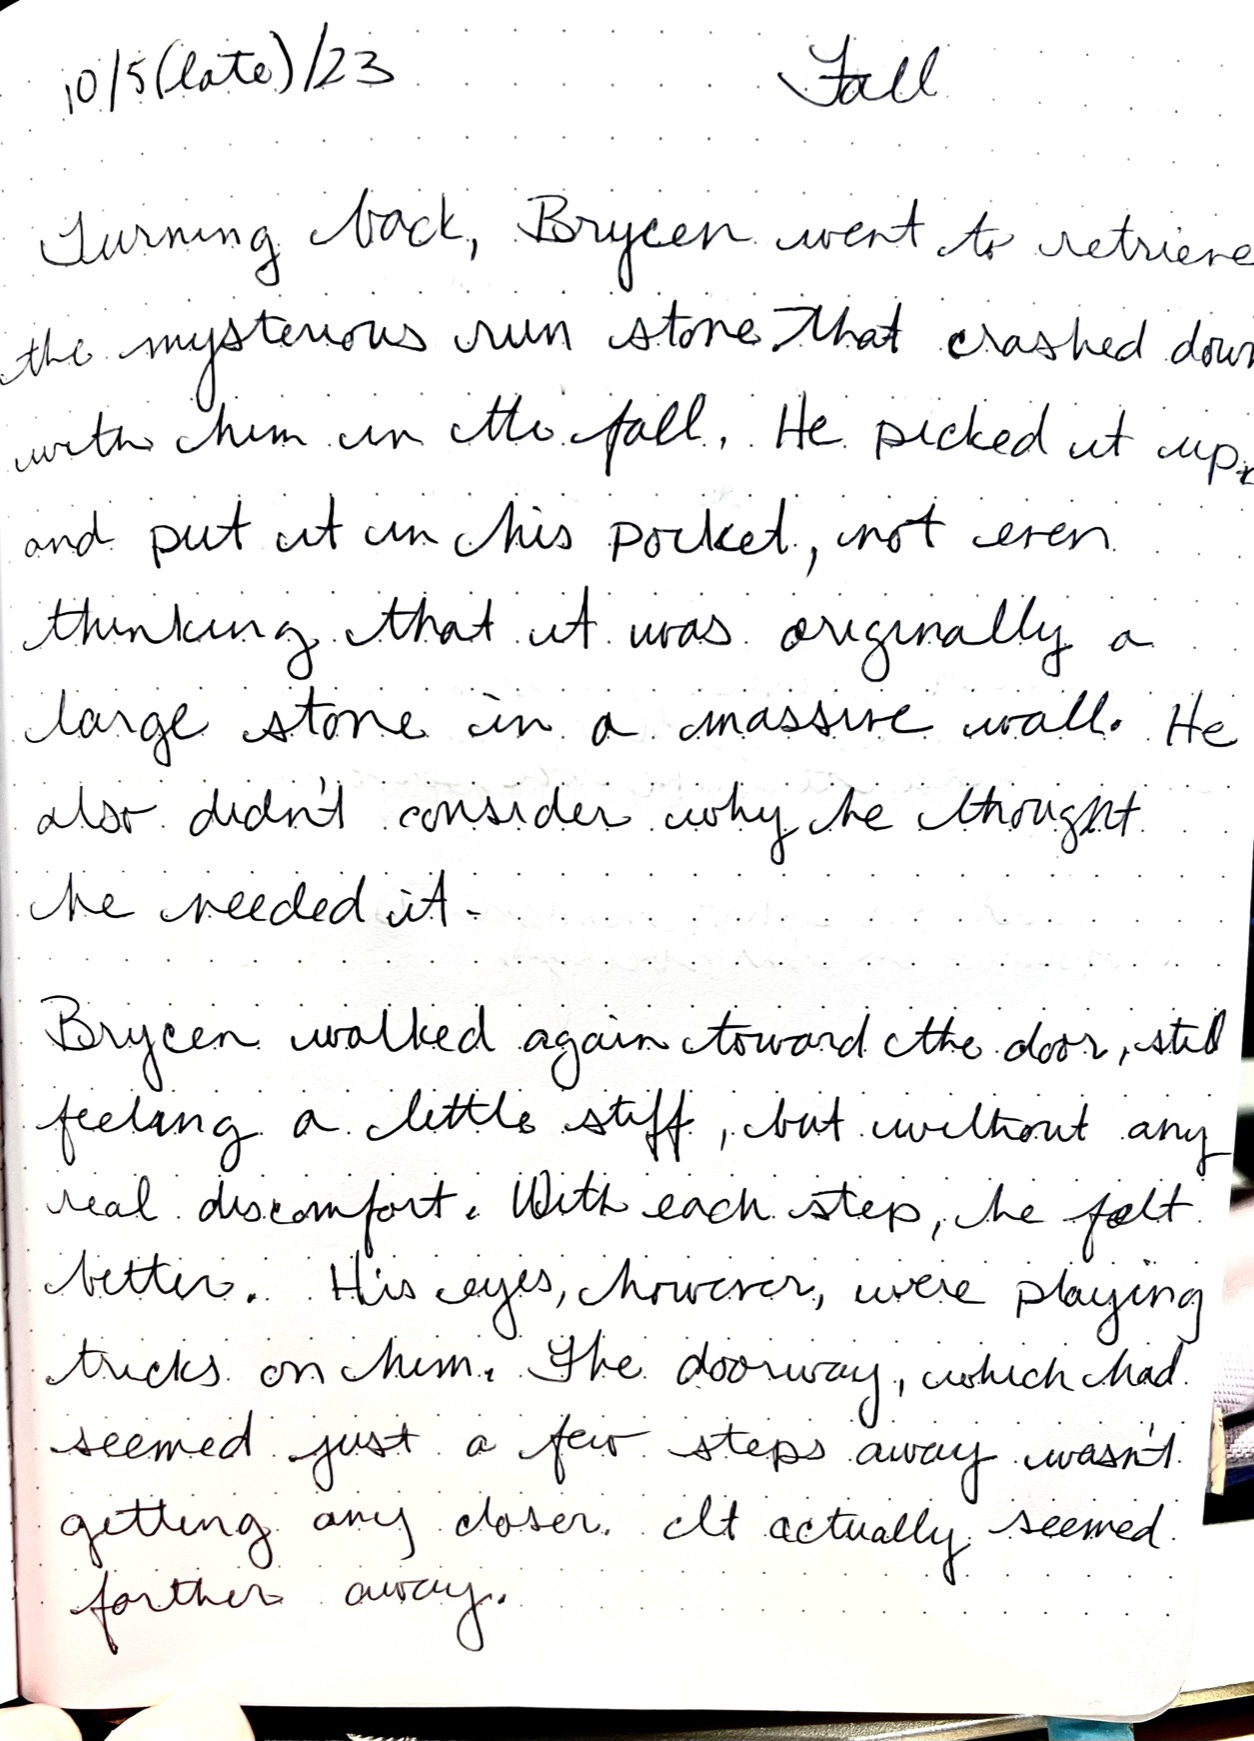 10/5(late)/23 Fall
Turning back, Brycen went to retrieve
the mysterious run stone that crashed down
with him in the fall. He picked it up
and put it in his pocket, not even
thinking that it was originally a
large stone in a massive wall. He
also didn't consider why he thought
he needed it.
Brycen walked again toward the door, still
feeling a little stiff, but without any
real discomfort. With each step, he felt
better. His eyes, however, were playing
tricks on him. The doorway, which had
seemed just a few steps away wasn't
getting any closer. It actually seemed
farther away.